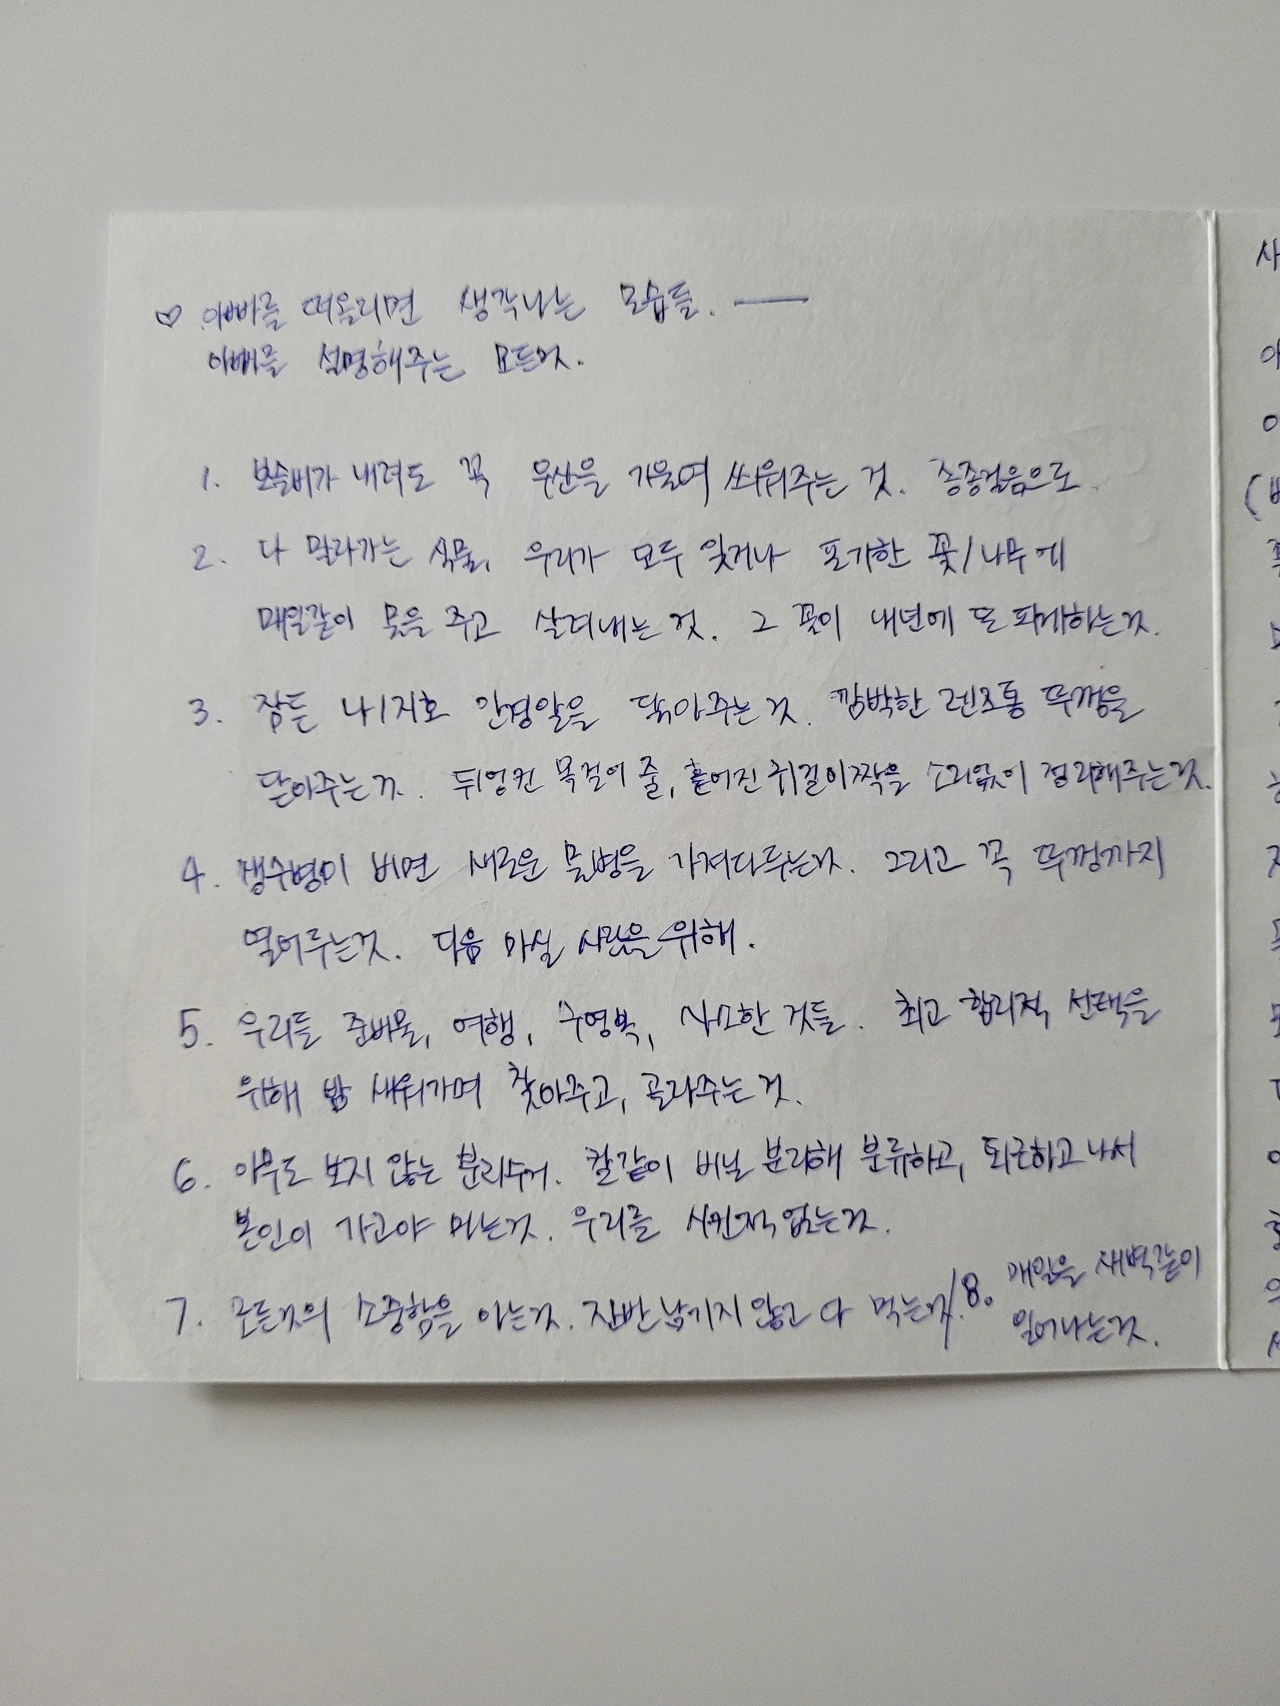 ♡ 아빠를 떠올리면 생각나는 모습들. ——
아빠를 설명해주는 모든것.
1. 보슬비가 내려도 꼭 우산을 기울여 씌워주는 것. 종종걸음으로.
2. 다 말라가는 식물, 우리가 모두 잊거나 포기한 꽃/나무에
매일같이 물을 주고 살려내는 것. 그 꽃이 내년에 또 피게하는것.
3. 잠든 나/지호 안경알을 닦아주는것. 깜박한 렌즈통 뚜껑을
닫아주는것. 뒤엉킨 목걸이 줄, 흩어진 귀걸이짝을 소리없이 정리해주는것.
4. 생수병이 비면 새로운 물병을 가져다두는것. 그리고 꼭 뚜껑까지
열어두는것. 다음 마실 사람을 위해.
5. 우리들 준비물, 여행, 수영복, 사소한 것들. 최고 합리적 선택을
위해 밤 새워가며 찾아주고, 골라주는 것.
6. 아무도 보지 않는 분리수거. 칼같이 비닐 분리해 분류하고, 퇴근하고나서
본인이 가고야 마는것. 우리를 시킨적 없는것.
7. 모든것의 소중함을 아는것. 잔반 남기지 않고 다 먹는것/8. 매일을 새벽같이
일어나는것.